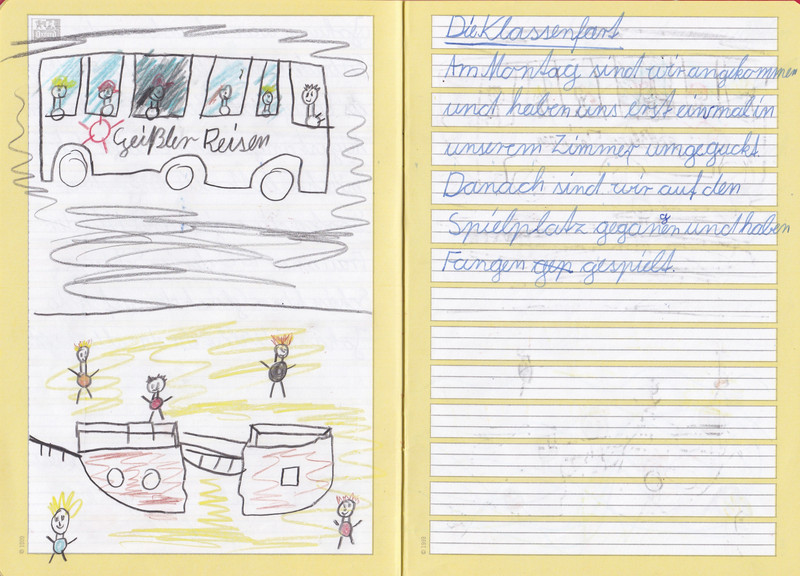 Geißler Reisen
Die Klassenfart
Am Montag sind wir angekommen
und haben uns erst einmal in
unserem Zimmer umgeguckt.
Danach sind wir auf den
Spielplatz gegangen und haben
Fangen gespielt.